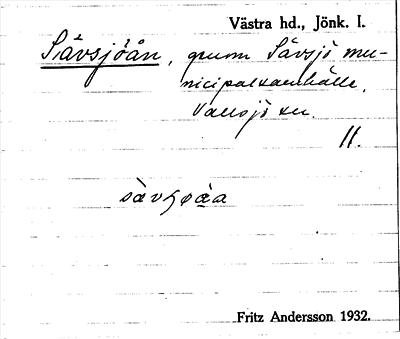 Västra hd., Jönk. l.
Sävsjöån, genom Sävsjö mu-
nicipalsamhälle,
Vallsjö sn.
11.
Fritz Andersson 1932.